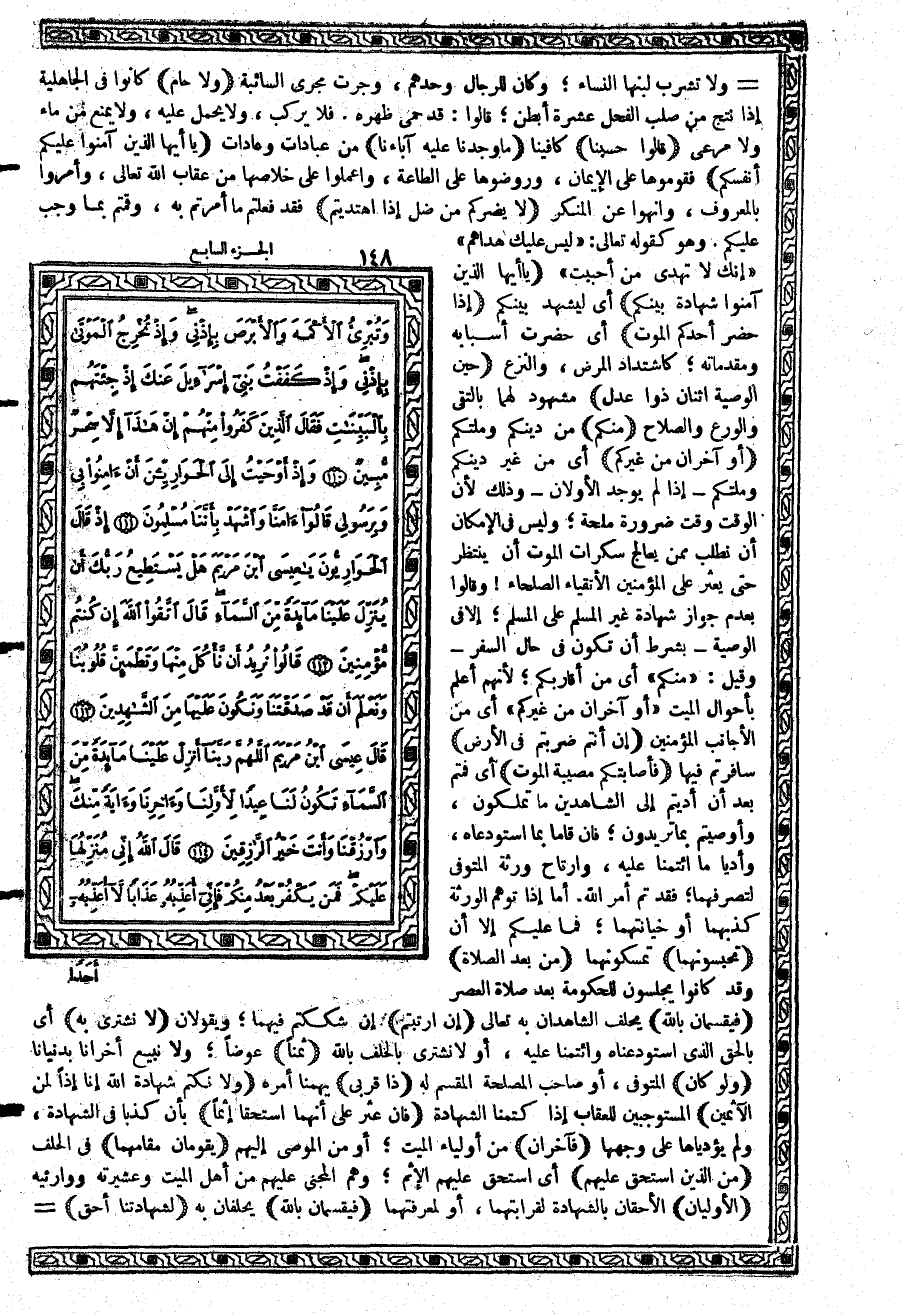 = ولا تشرب لبنها النساء ؛ وكان للرجال وحدهم ، وجرت مجرى السائبة (ولا حام) كانوا فى الجاهلية
إذا نتج من صلب الفحل عشرة أبطن ؛ قالوا : قد حمى ظهره . فلا يركب ، ولا يحمل عليه ، ولا يمنع من ماء
ولا مرعى (قالوا حسبنا) كافينا (ما وجدنا عليه آباءنا) من عبادات وعادات (يا أيها الذين آمنوا عليكم
أنفسكم) فقوموها على الإيمان ، وروضوها على الطاعة ، واعملوا على خلاصها من عقاب الله تعالى ، وأمروا
بالمعروف ، وانهوا عن المنكر (لا يضركم من ضل إذا اهتديتم) فقد فعلتم ما أمرتم به ، وقمتم بما وجب
عليكم . وهو كقوله تعالى: «ليس عليك هداهم»
«إنك لا تهدى من أحببت» (يا أيها الذين
آمنوا شهادة بينكم) أى ليشهد بينكم (إذا
حضر أحدكم الموت) أى حضرت أسبابه
ومقدماته ؛ كاشتداد المرض ، والنزع (حين
الوصية اثنان ذوا عدل) مشهود لهما بالتقى
والورع والصلاح (منكم) من دينكم وملتكم
(أو آخران من غيركم) أى من غير دينكم
وملتكم – إذا لم يوجد الأولان – وذلك لأن
الوقت وقت ضرورة ملحة ؛ وليس فى الإمكان
أن نطلب ممن يعالج سكرات الموت أن ينتظر
حتى يعثر على المؤمنين الأتقياء الصلحاء ! وقالوا
بعدم جواز شهادة غير المسلم على المسلم ؛ إلا فى
الوصية – بشرط أن تكون فى حال السفر –
وقيل : «منكم» أى من أقاربكم ؛ لأنهم أعلم
بأحوال الميت «أو آخران من غيركم» أى من
الأجانب المؤمنين (إن أنتم ضربتم فى الأرض)
سافرتم فيها (فأصابتكم مصيبة الموت) أى فتم
بعد أن أديتم إلى الشاهدين ما تملكون ،
وأوصيتم بما تريدون ؛ فان قاما بما استودعاه ،
وأديا ما ائتمنا عليه ، وارتاح ورثة المتوفى
لتصرفهما؛ فقد تم أمر الله. أما إذا توهم الورثة
كذبهما أو خيانتهما ؛ فما عليكم إلا أن
(تحبسونهما) تمسكونهما (من بعد الصلاة)
وقد كانوا يجلسون للحكومة بعد صلاة العصر
الجزء السابع
١٤٨
وَتُبْرِئُ ٱلْأَكْمَهَ وَٱلْأَبْرَصَ بِإِذْنِىۖ وَإِذْ تُخْرِجُ ٱلْمَوْتَىٰ
بِإِذْنِىۖ وَإِذْ كَفَفْتُ بَنِىٓ إِسْرَٰٓءِيلَ عَنكَ إِذْ جِئْتَهُم
بِٱلْبَيِّنَٰتِ فَقَالَ ٱلَّذِينَ كَفَرُوا۟ مِنْهُمْ إِنْ هَٰذَآ إِلَّا سِحْرٌ
مُّبِينٌ ١١٠ وَإِذْ أَوْحَيْتُ إِلَى ٱلْحَوَارِيِّۦنَ أَنْ ءَامِنُوا۟ بِى
وَبِرَسُولِى قَالُوٓا۟ ءَامَنَّا وَٱشْهَدْ بِأَنَّنَا مُسْلِمُونَ ١١١ إِذْ قَالَ
ٱلْحَوَارِيُّونَ يَٰعِيسَى ٱبْنَ مَرْيَمَ هَلْ يَسْتَطِيعُ رَبُّكَ أَن
يُنَزِّلَ عَلَيْنَا مَآئِدَةً مِّنَ ٱلسَّمَآءِۖ قَالَ ٱتَّقُوا۟ ٱللَّهَ إِن كُنتُم
مُّؤْمِنِينَ ١١٢ قَالُوا۟ نُرِيدُ أَن نَّأْكُلَ مِنْهَا وَتَطْمَئِنَّ قُلُوبُنَا
وَنَعْلَمَ أَن قَدْ صَدَقْتَنَا وَنَكُونَ عَلَيْهَا مِنَ ٱلشَّٰهِدِينَ ١١٣
قَالَ عِيسَى ٱبْنُ مَرْيَمَ ٱللَّهُمَّ رَبَّنَآ أَنزِلْ عَلَيْنَا مَآئِدَةً مِّنَ
ٱلسَّمَآءِ تَكُونُ لَنَا عِيدًا لِّأَوَّلِنَا وَءَاخِرِنَا وَءَايَةً مِّنكَۖ
وَٱرْزُقْنَا وَأَنتَ خَيْرُ ٱلرَّٰزِقِينَ ١١٤ قَالَ ٱللَّهُ إِنِّى مُنَزِّلُهَا
عَلَيْكُمْۖ فَمَن يَكْفُرْ بَعْدُ مِنكُمْ فَإِنِّىٓ أُعَذِّبُهُۥ عَذَابًا لَّآ أُعَذِّبُهُۥٓ
أَحَدًا
(فيقسمان بالله) يحلف الشاهدان به تعالى (إن ارتبتم) إن شككتم فيهما ؛ ويقولان (لا نشترى به) أى
بالحق الذى استودعناه وائتمنا عليه ، أو لا نشترى بالحلف بالله (ثمناً) عوضاً ؛ ولا نبيع أخرانا بدنيانا
(ولو كان) المتوفى ، أو صاحب المصلحة المقسم له (ذا قربى) يهمنا أمره (ولا نكتم شهادة الله إنا إذاً لمن
الآثمين) المستوجبين للعقاب إذا كتمنا الشهادة (فان عثر على أنهما استحقا إثماً) بأن كذبا فى الشهادة ،
ولم يؤدياها على وجهها (فآخران) من أولياء الميت ؛ أو من الموصى إليهم (يقومان مقامهما) فى الحلف
(من الذين استحق عليهم) أى استحق عليهم الإثم ؛ وهم المجنى عليهم من أهل الميت وعشيرته ووارثيه
(الأوليان) الأحقان بالشهادة لقرابتهما ، أو لمعرفتهما (فيقسمان بالله) يحلفان به (لشهادتنا أحق) =